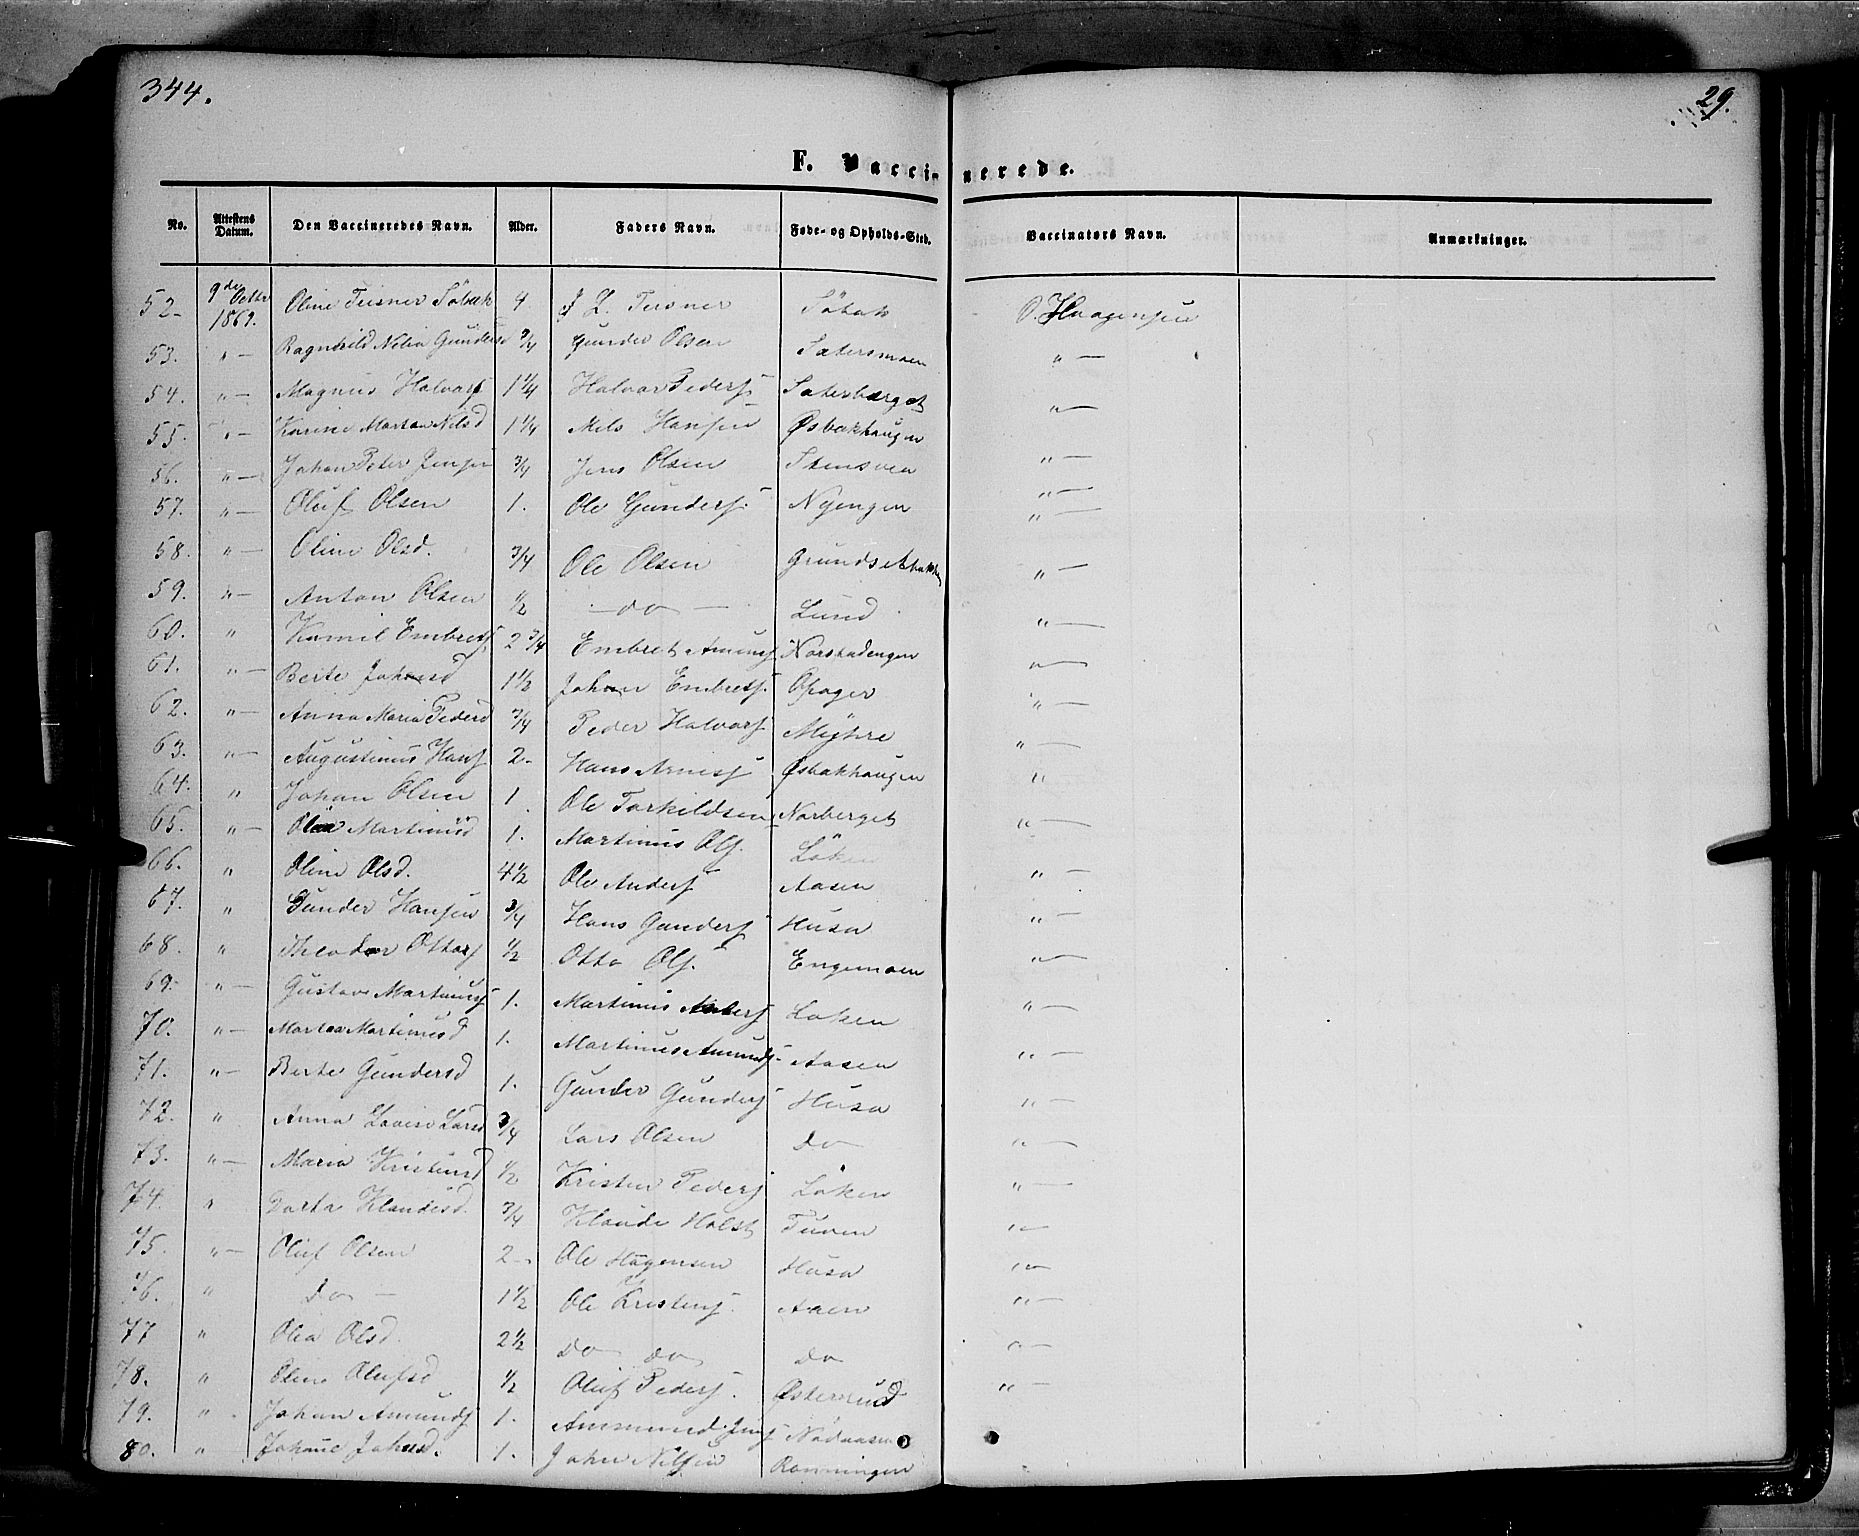 344.
29.
F. Vaccinerede.
No. Attestens Datum. Den Vaccineredes Navn. Alder. Faders Navn. Føde- og Opholds-Sted. Vaccinators Navn. Anmærkninger.
52- 9de Octbr 1869. Oline Teisner Söbak 4. Z. Teisner Söbak O. Haagensen
53. " — Ragnhild Gunders 3/4 Gunder Olsen Satersmoen " —
54. " — Magnus Halvors 1 1/4 Halvor Peders Satersberget " —
55. " — Karine Martea Nilsd 1 1/4 Nils Hansen Øsbakhaugen
56. " — Johan Peter Jensen 3/4 Jens Olsen Stensvea " —
57. " — Oluf Olsen 1. Ole Gunders. Nyengen " —
58. " — Oline Olsd. 3/4 Ole Olsen " —
59. " — Anton Olsen 1/2 — do — Lund " —
60. " Kamil Embrets 2 3/4 Embret Amunds Norstadengen " —
61. " — Berte Johansd 1 1/2 Johan Embrets. Opager " —
62. " — Anna Maria Pedersd 3/4 Peder Halvors Myhre " —
63. " — Augustinus Hans 2- Hans Arnes Øsbakhaugen " —
64. " Johan Olsen 1. Ole Torkildsen Norberget "
65. " — Olea Martinusd 1. Martinus Ols. Löken " —
66. " Oline Olsd. 4 1/2 Ole Anders Aasen " —
67. " Gunder Hansen 3/4 Hans Gunders Husa " —
68. " Theodor Ottos 1/2 Otto Ols. Engemoen " —
69. " — Gustav Martinus 1. Martinus Löken " —
70. " — Martea Martinusd 1. Martinus Amunds. Aasen " —
71. " — Berte Gundersd 1. Gunder Gunders Husa " —
72. " Anna Lovise Larsd 3/4 Lars Olsen Do " —
73. " — Maria Kristensd 1/2 Kristen Peders Löken " —
74. " Dorte Klaudesd. 3/4 Klaude Holst Tuven " —
75. " — Oluf Olsen 2- Ole Hagensen Husa " —
76. " Do — 1 1/2 Ole Kristens. Aaen " —
77 " Olea Olsd. 2 1/2 Do do do " —
78. " Oline Olufsd 1/2 Oluf Peders. Østerrud " —
79. " Johan Amunds 1. Ammund Nödaasen
80. " Johane Johnsd. 1. John Nilsen Ronningen